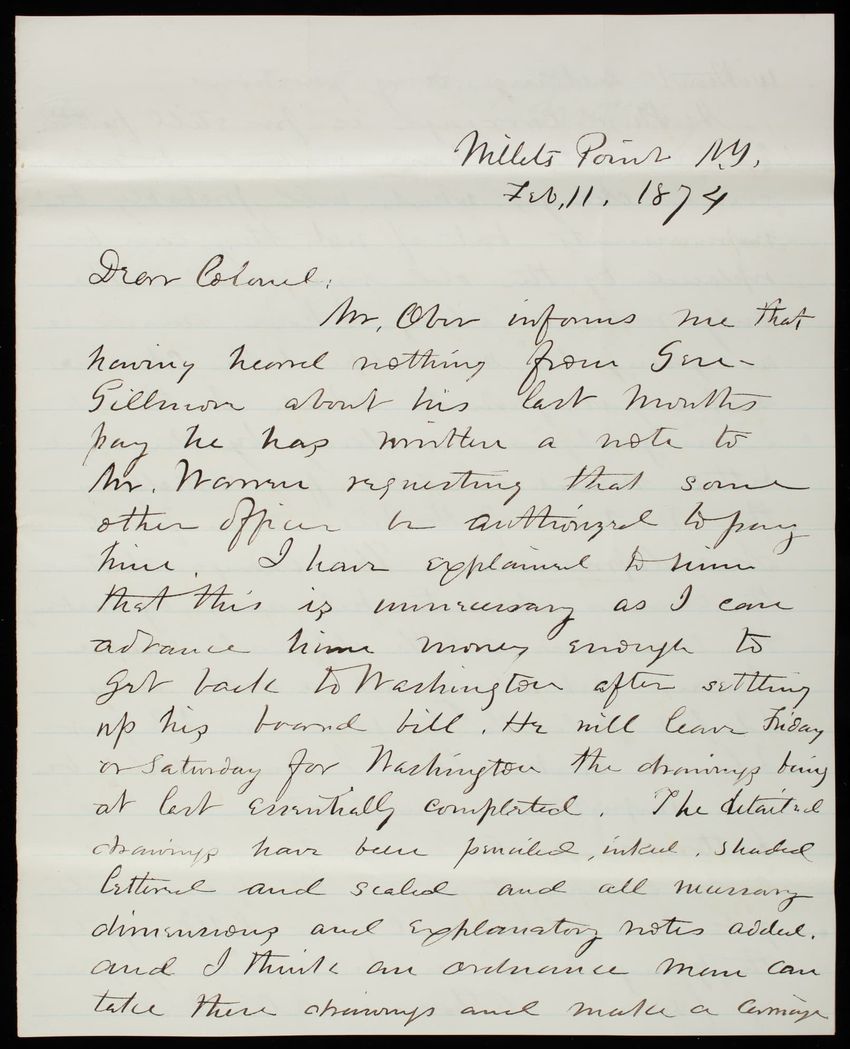 Willets Point N.Y.
Feb. 11. 1874
Dear Colonel:
Mr. Ober informs me that
having heard nothing from Gen-
Gillmore about his last months
pay he has written a note to
Mr. Warren requesting that some
other officer be authorized to pay
him. I have explained to him
that this is unnecessary as I can
advance him money enough to
get back to Washington after settling
up his board bill. He will leave Friday
or Saturday for Washington the drawings being
at last essentially completed. The detailed
drawings have been penciled, inked, shaded
lettered and scaled and all necessary
dimensions and explanatory notes added.
and I think an ordnance man can
take these drawings and make a carriage